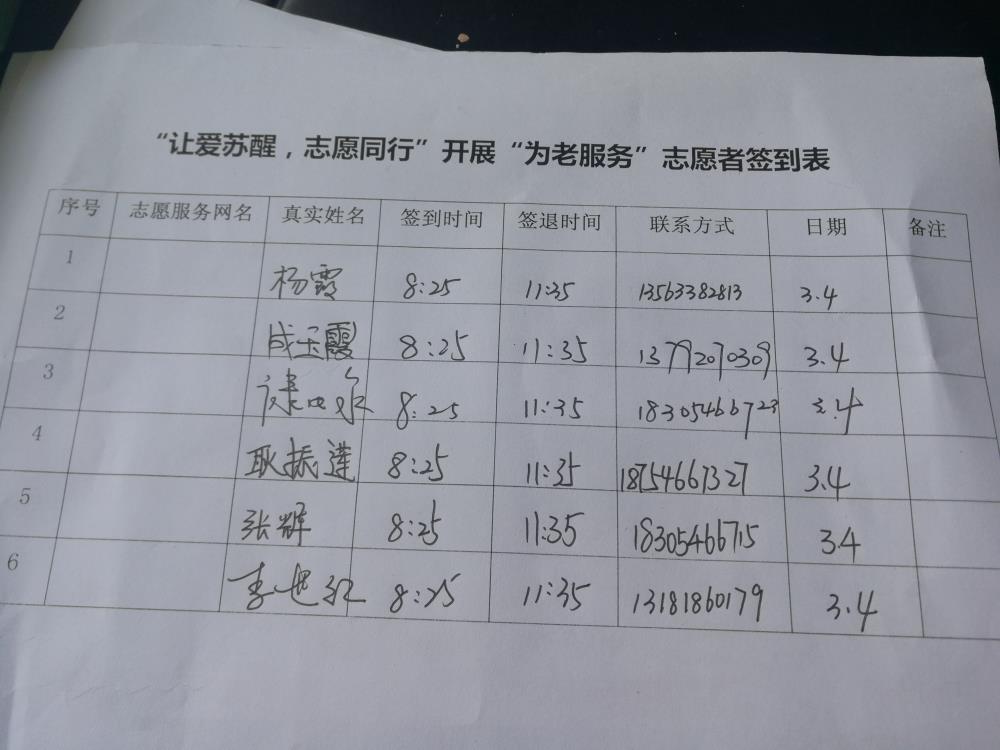 “让爱苏醒，志愿同行”开展“为老服务”志愿者签到表
序号 志愿服务网名 真实姓名 签到时间 签退时间 联系方式 日期 备注
1 杨霞 8:25 11:35 13563382813 3.4
2 成玉霞 8:25 11:35 13792070309 3.4
3 8:25 11:35 18305466723 3.4
4 耿振莲 8:25 11:35 18754661327 3.4
5 张辉 8:25 11:35 18305466715 3.4
6 8:25 11:35 13181860179 3.4